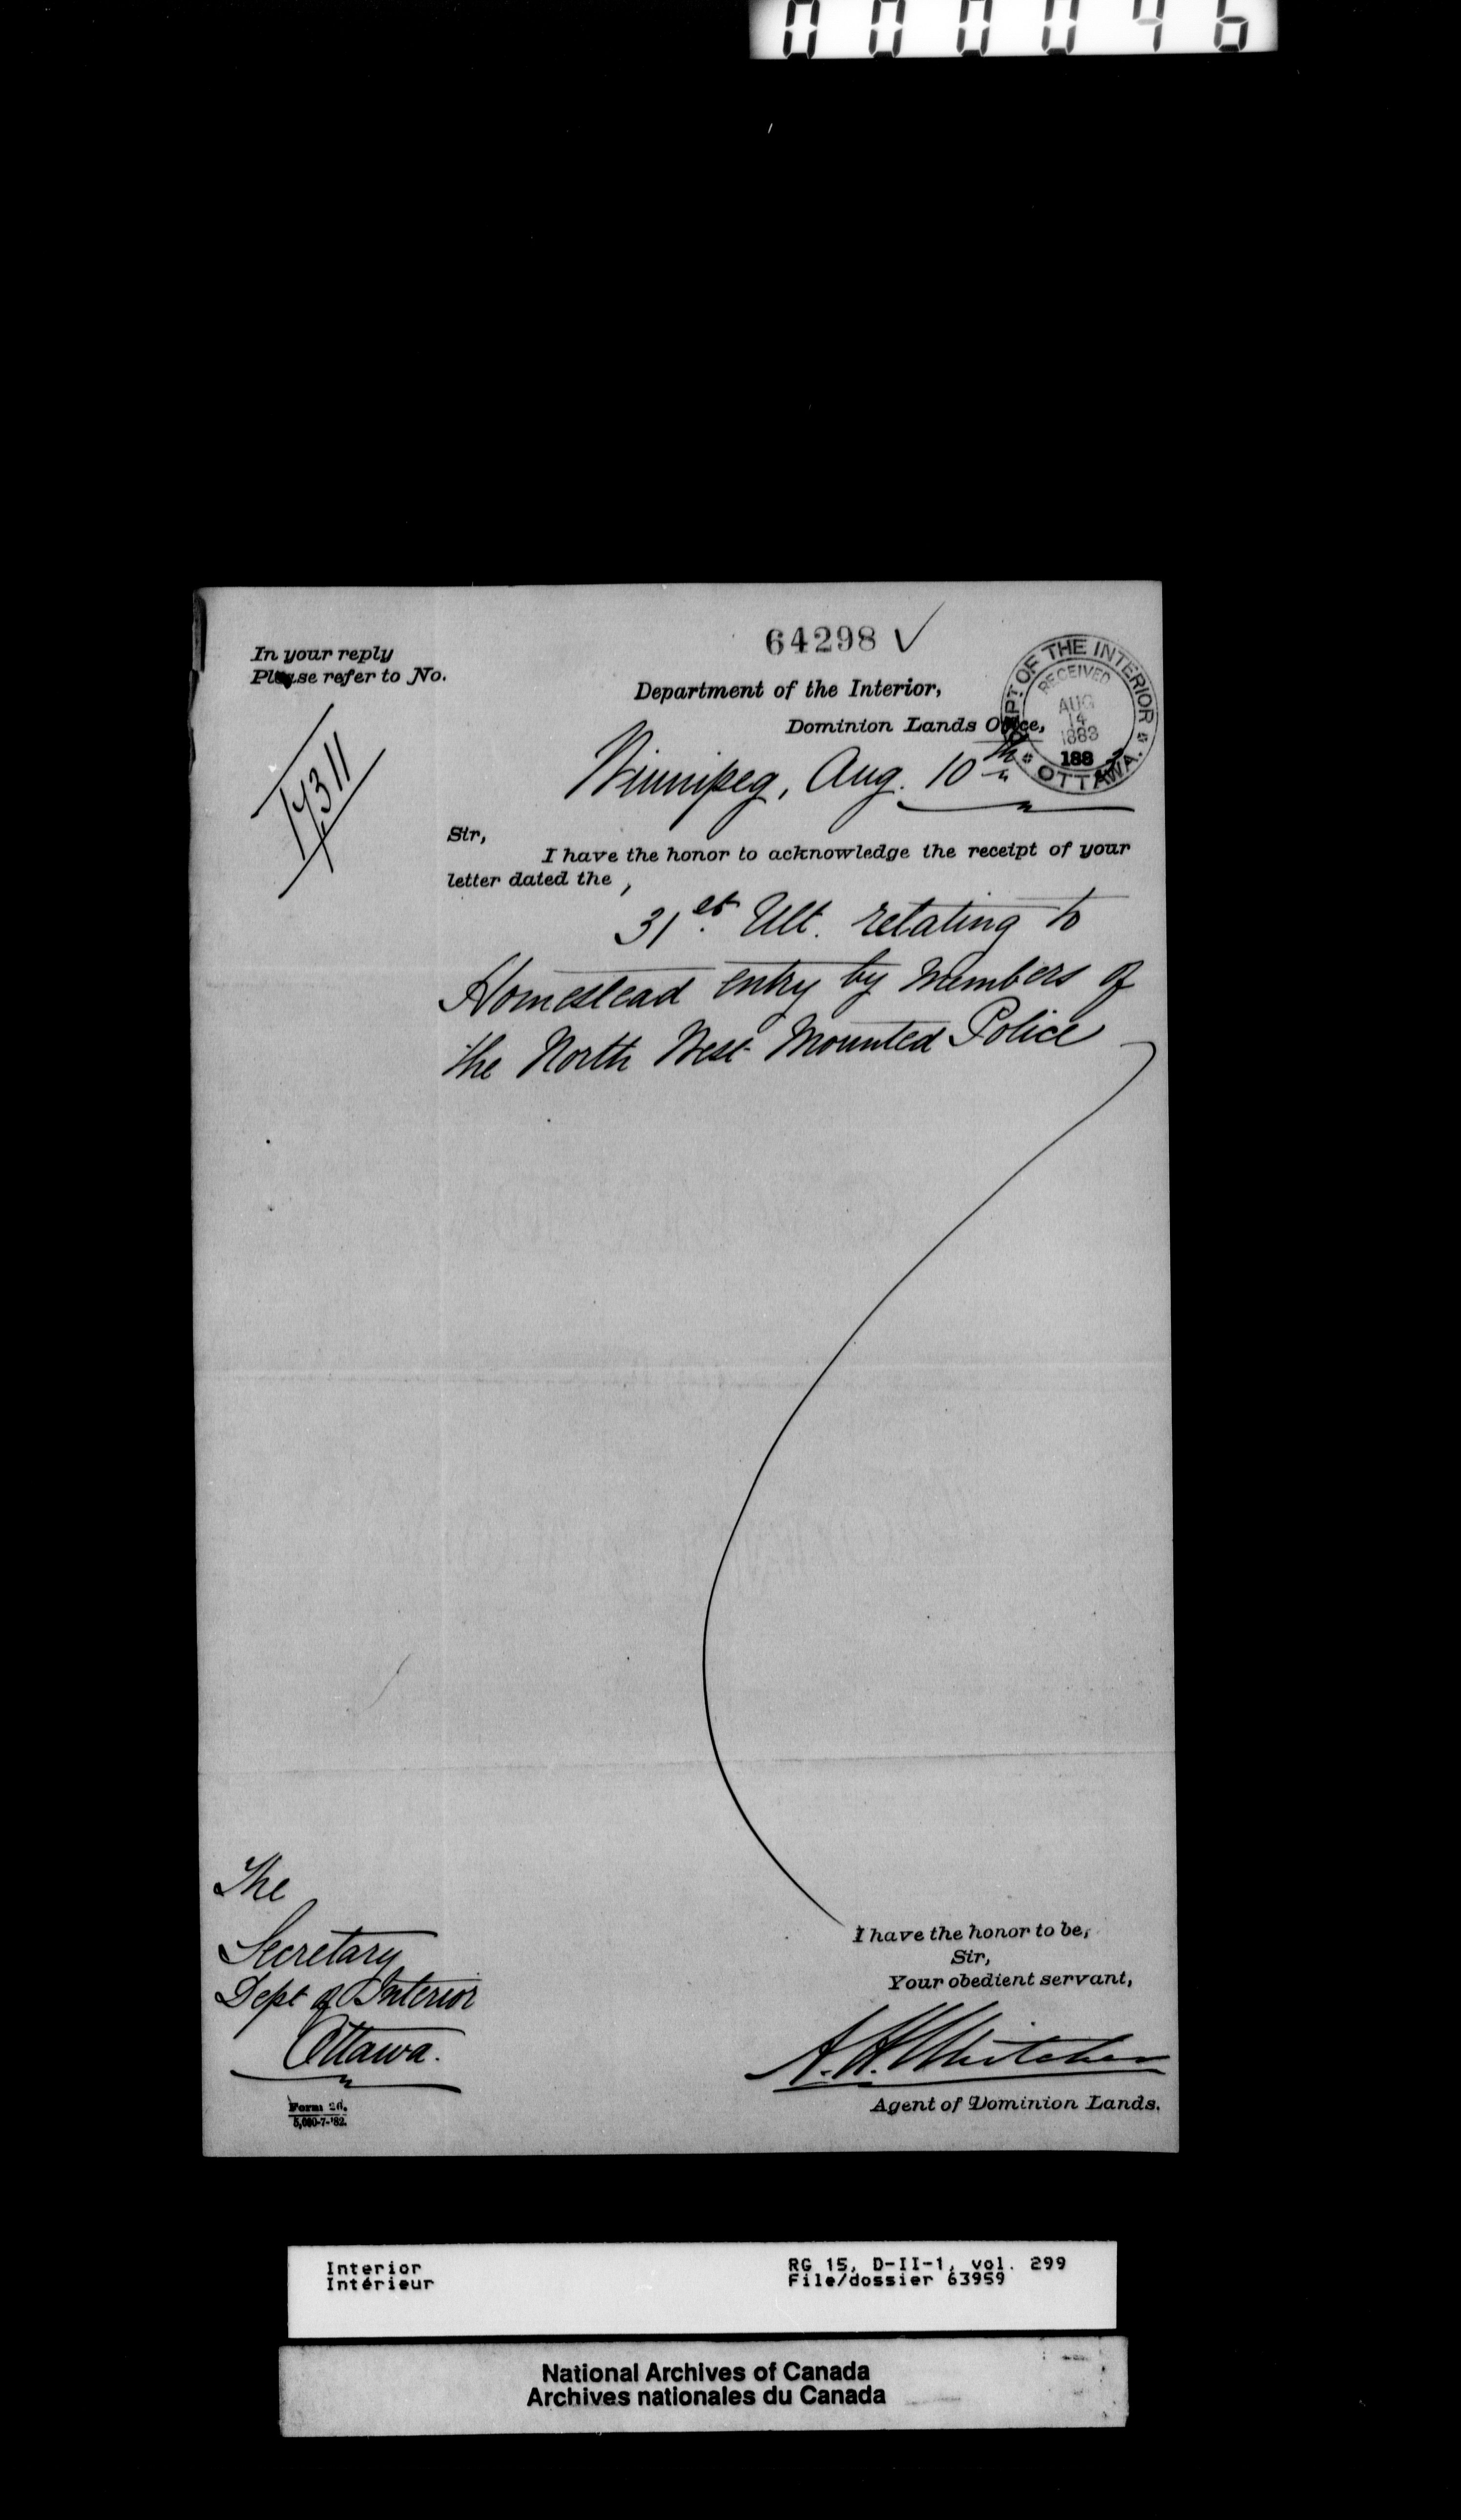 000046
64298 ✓
In your reply
Please refer to No.
17311
Department of the Interior,
Dominion Lands Office,
DEPT. OF THE INTERIOR
RECEIVED
AUG
14
1883
OTTAWA.
Winnipeg, Aug. 10th 188
Sir,
I have the honor to acknowledge the receipt of your
letter dated the,
31st. Ult. relating to
Homestead entry by Members of
the North West Mounted Police
The
Secretary
Dept of Interior
Ottawa.
I have the honor to be,
Sir,
Your obedient servant,
A. H. Whitcher
Agent of Dominion Lands.
Form 26.
5,000-7-'82.
Interior
Intérieur
RG 15, D-II-1, vol. 299
File/dossier 63959
National Archives of Canada
Archives nationales du Canada